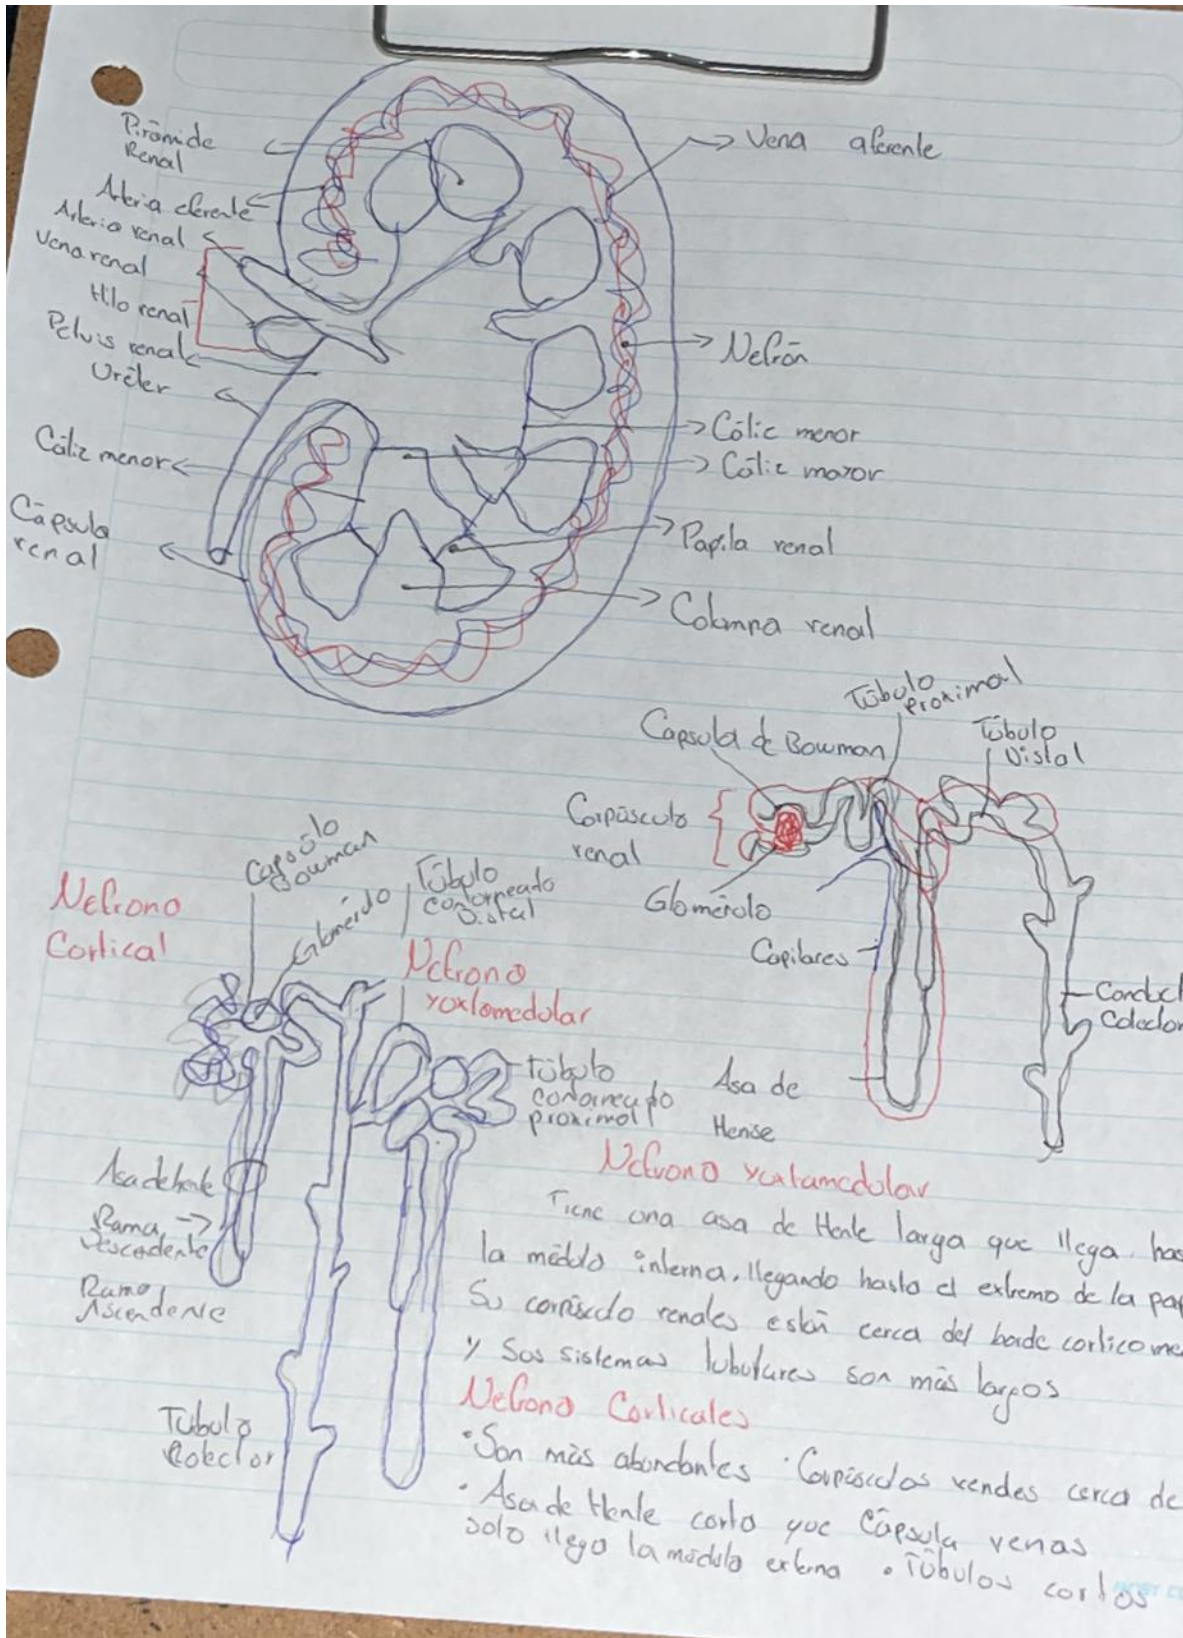 Pirāmide
Renal
Arteria eferente
Arteria renal
Vena renal
Hilo renal
Pelvis renal
Urēter
Cāliz menor
Cāpsula
renal
Vena aferente
Nefrōn
Cāliz menor
Cāliz mayor
Papila renal
Columna renal
Tūbulo
Proximal
Capsula de Bowman
Tūbulo
Distal
Corpūsculo
renal
Glomērulo
Capilares
Asa de
Henle
Conduct
Colector
Nefrona
Cortical
Capsūla
Bowman
Glomērulo
Tūbulo
contorneado
Distal
Nefrona
yuxtamedular
Tūbulo
contorneado
proximal
Asa de henle
Rama
Descedente
Rama
Ascendente
Tūbulo
Colector
Nefrona yuxtamedular
Tiene una asa de Henle larga que llega has
la mēdula interna, llegando hasta el extremo de la pap
Su corpūsculo renales estān cerca del borde corticome
y sus sistemas tubulares son mās largos
Nefrona Corticales
• Son mās abundantes • Corpūsculos renales cerca de
• Asa de Henle corta que Cāpsula venas
solo llega la mēdula externa • Tūbulos cortos